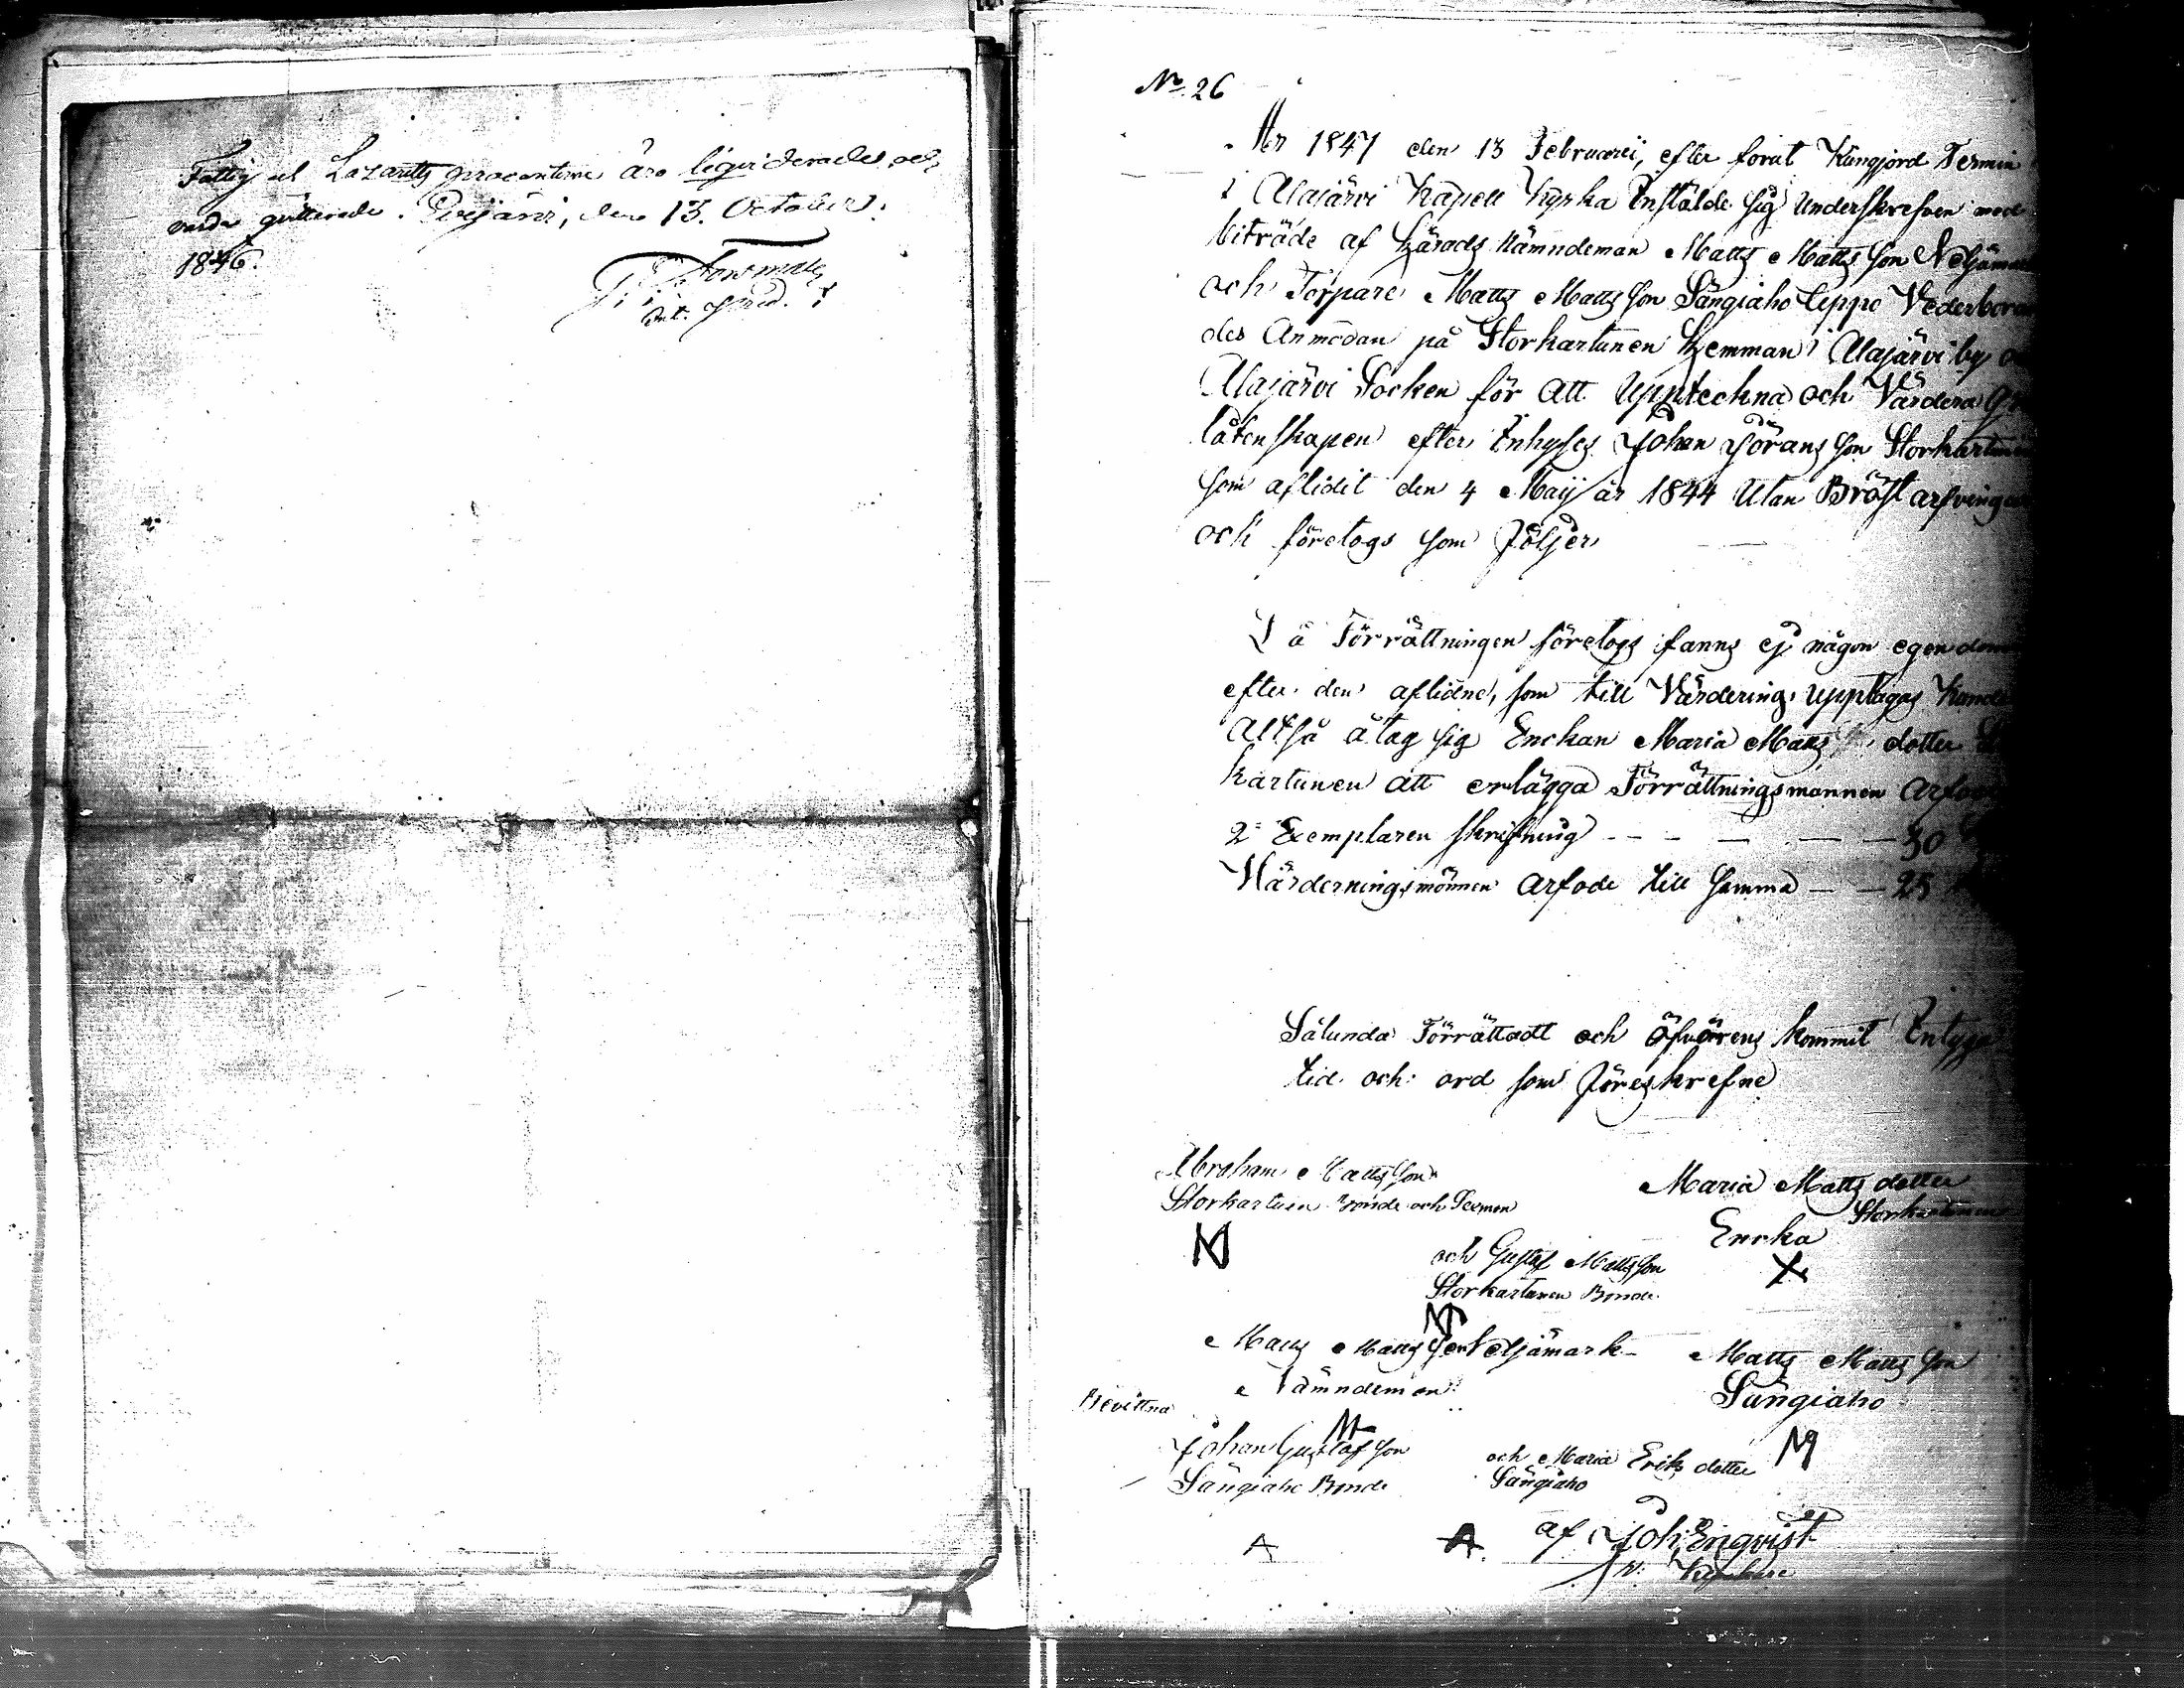 Fattig ock Lazaretts procenterne äro liquiderade och
varda quitterade. Evijärvi, den 13. October
1846.
No. 26
År 1847 den 13 Februarii, efter forut Kungjord Termin
i Alajärvi Kapell Kyrka Instälde sig Underskrefven med
biträde af Härads Nämndeman Matts Matts Son
och Torpare Matts Matts Son Sängiaho Uppå Vederboran
des Anmodan på Storkartunen Hemman i Alajärvi by
Alajärvi Socken för Att Uppteckna och Värdera
låtenskapen efter Inhyses Johan Görans Son Storkartunen
som aflidit den 4 Maij år 1844 Utan Bröst arfvingar
och företogs som Följer
Då Förrättningen företogs fanns ej någon egendom
efter den aflidne, som till Värdering upptagas Kunde
Altså åtag sig Enckan Maria Matts dotter
kartunen att erlägga Förrättningsmannen Arfode
2 Exemplaren skrifning - - - - - 30
Värderningsmännen Arfode till Samma - - 25
Sålunda Förrättadt och öfverens kommit Intygar
tid och ord som Föreskrefne
Abraham Matts Son
Storkartunen Bonde och
Maria Matts dotter
Storkartunen
Encka
och Gustaf Matts Son
Storkartunen Bonde
Matts Matts Son
Nämndeman
Matts Matts Son
Sängiaho
Bevittna
Johan Gustaf Son
Sängiaho Bonde
och Maria Eriks dotter
Sängiaho
af Joh: Enqvist